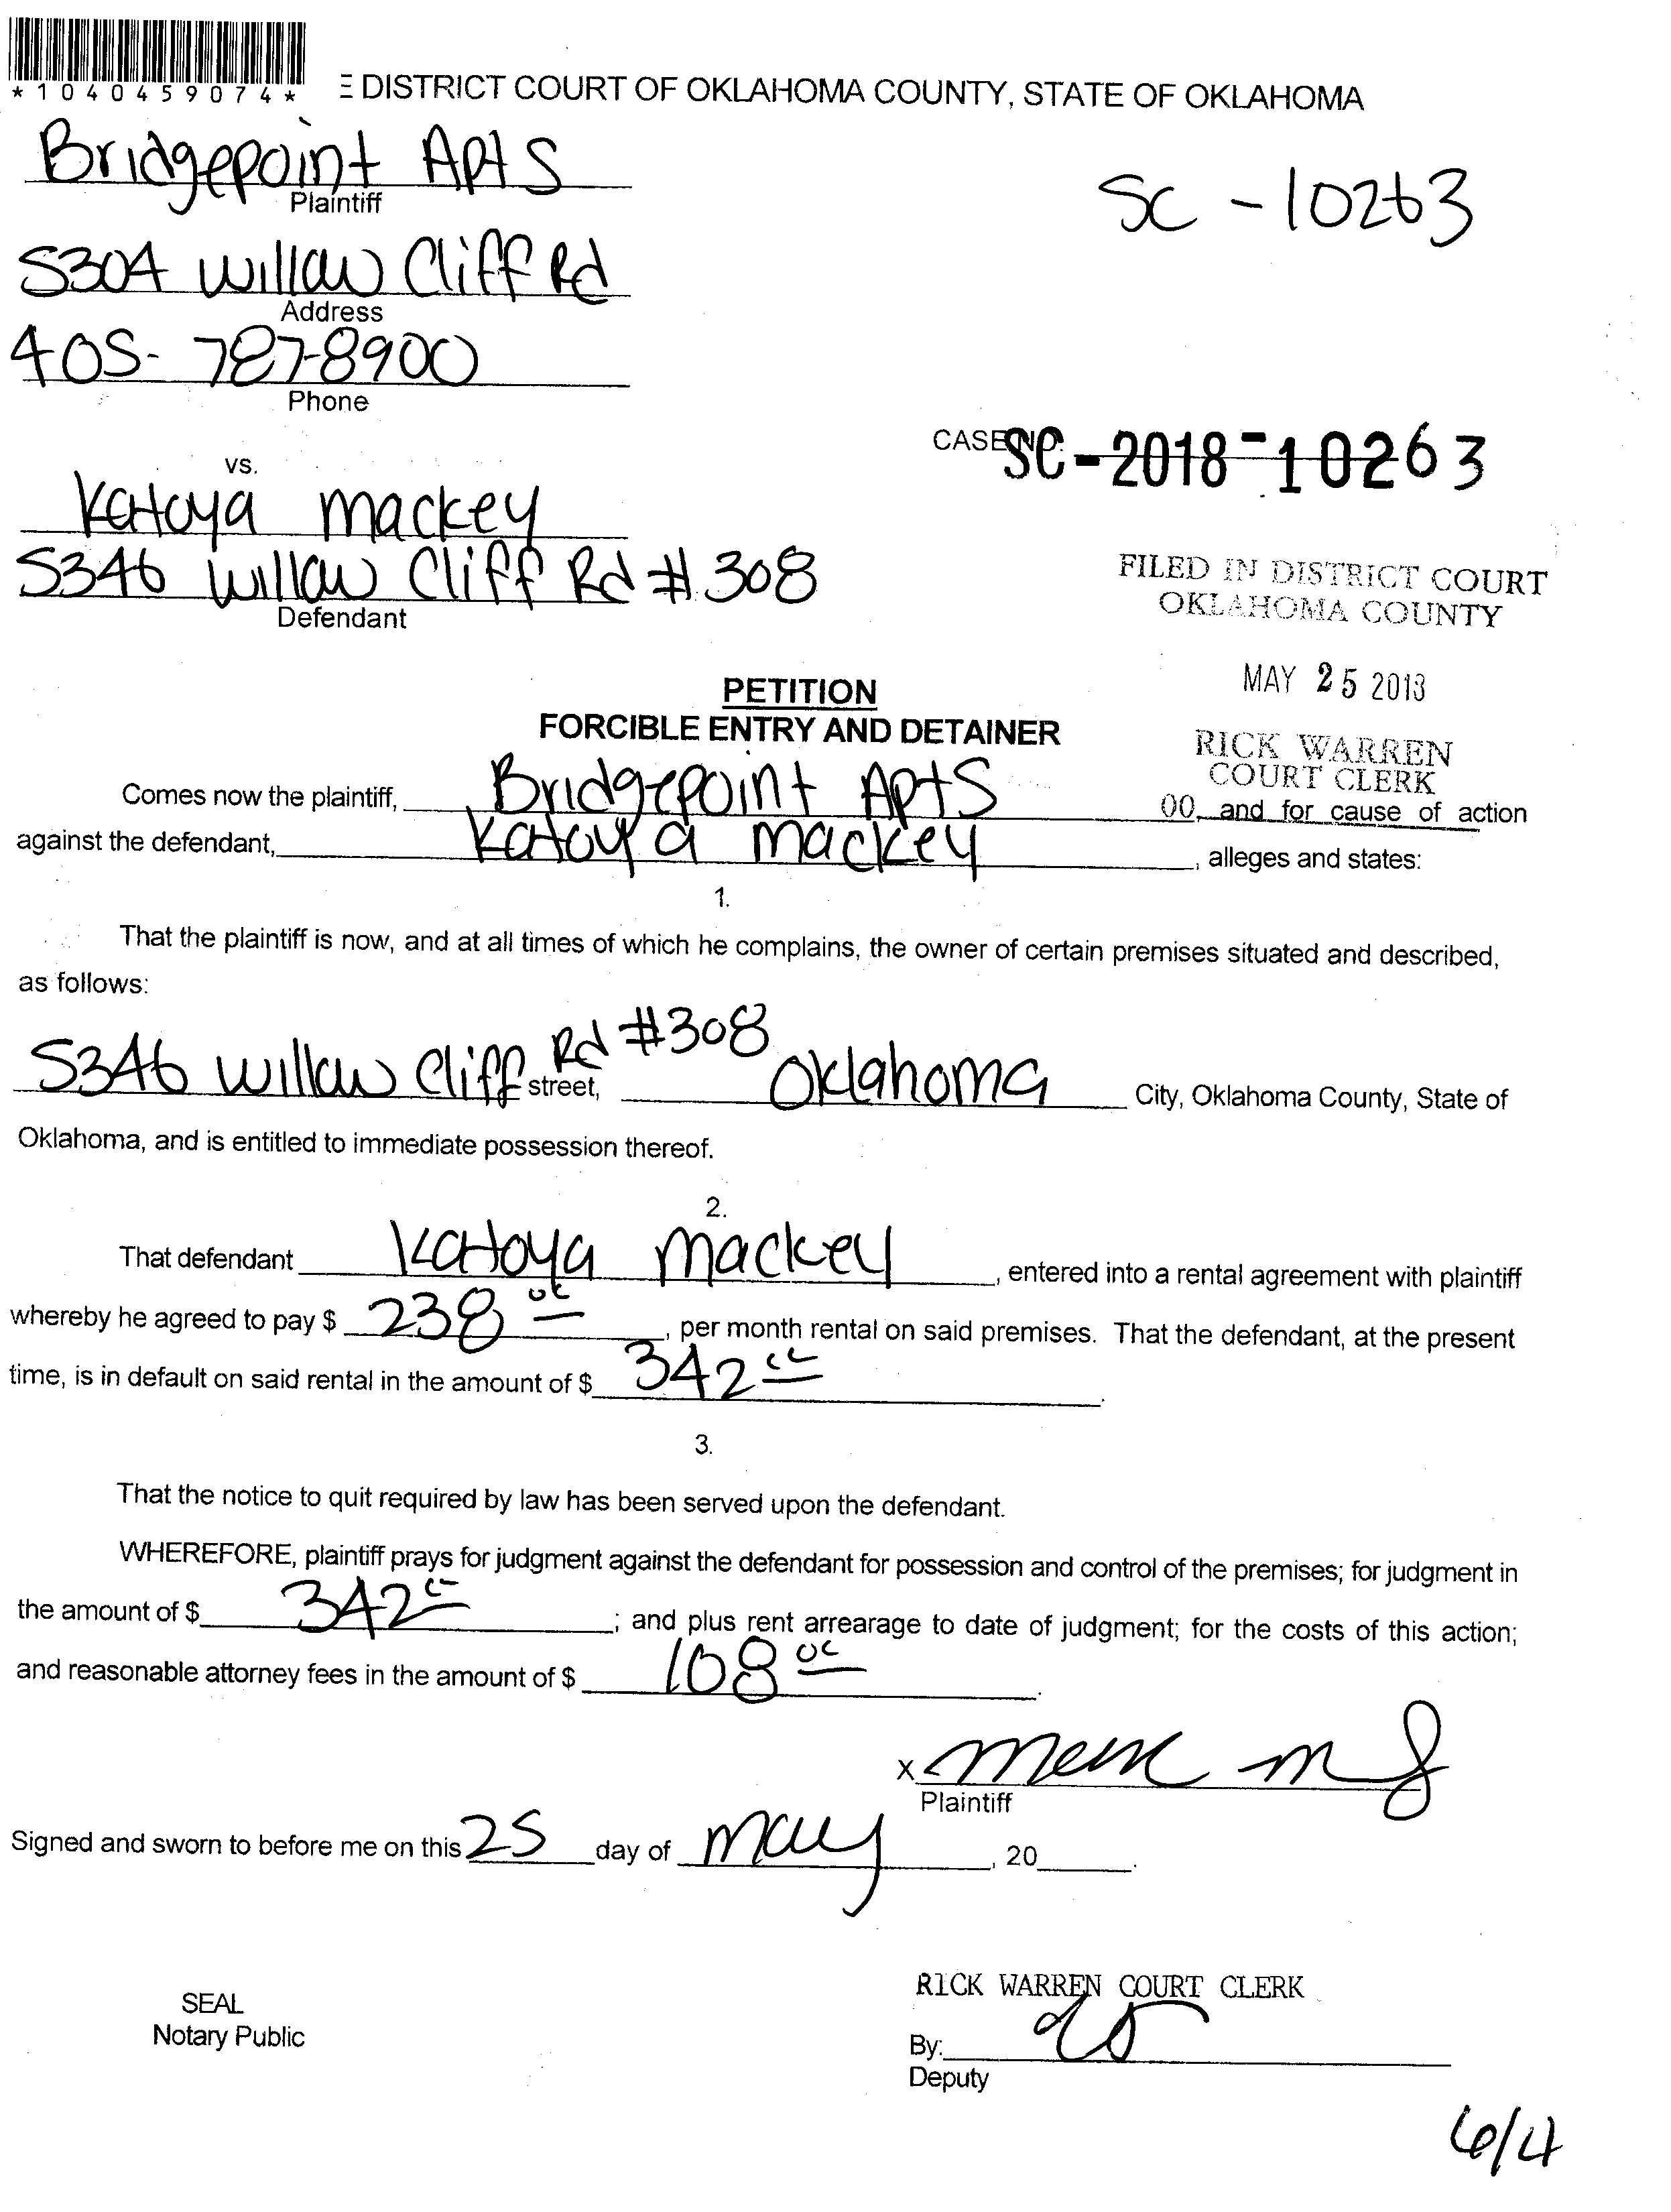 *1040459074*
E DISTRICT COURT OF OKLAHOMA COUNTY, STATE OF OKLAHOMA
Bridgepoint Apts
Plaintiff
SC - 10263
5304 Willow Cliff Rd
Address
405-787-8900
Phone
CASE NO. SC-2018-10263
vs.
Katoya Mackey
5346 Willow Cliff Rd #308
Defendant
FILED IN DISTRICT COURT
OKLAHOMA COUNTY
MAY 25 2018
RICK WARREN
COURT CLERK
PETITION
FORCIBLE ENTRY AND DETAINER
Comes now the plaintiff, Bridgepoint Apts 00, and for cause of action
against the defendant, Katoya Mackey, alleges and states:
1.
That the plaintiff is now, and at all times of which he complains, the owner of certain premises situated and described,
as follows:
5346 Willow Cliff Rd #308 street, Oklahoma City, Oklahoma County, State of
Oklahoma, and is entitled to immediate possession thereof.
2.
That defendant Katoya Mackey, entered into a rental agreement with plaintiff
whereby he agreed to pay $ 238 00, per month rental on said premises. That the defendant, at the present
time, is in default on said rental in the amount of $ 342 00.
3.
That the notice to quit required by law has been served upon the defendant.
WHEREFORE, plaintiff prays for judgment against the defendant for possession and control of the premises; for judgment in
the amount of $ 342 00; and plus rent arrearage to date of judgment; for the costs of this action;
and reasonable attorney fees in the amount of $ 108 00.
X
Plaintiff
Signed and sworn to before me on this 25 day of May, 20 .
SEAL
Notary Public
RICK WARREN COURT CLERK
By:
Deputy
6/4